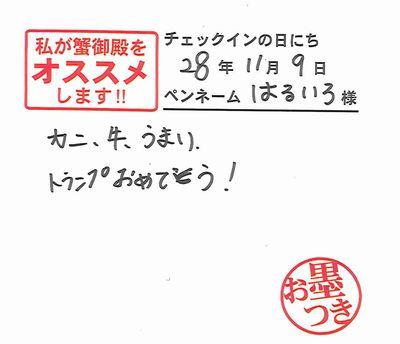 私が蟹御殿を
オススメ
します!!
チェックインの日にち
28年11月9日
ペンネーム はるいろ 様
カニ、牛、うまい.
トランプおめでとう!
お墨つき